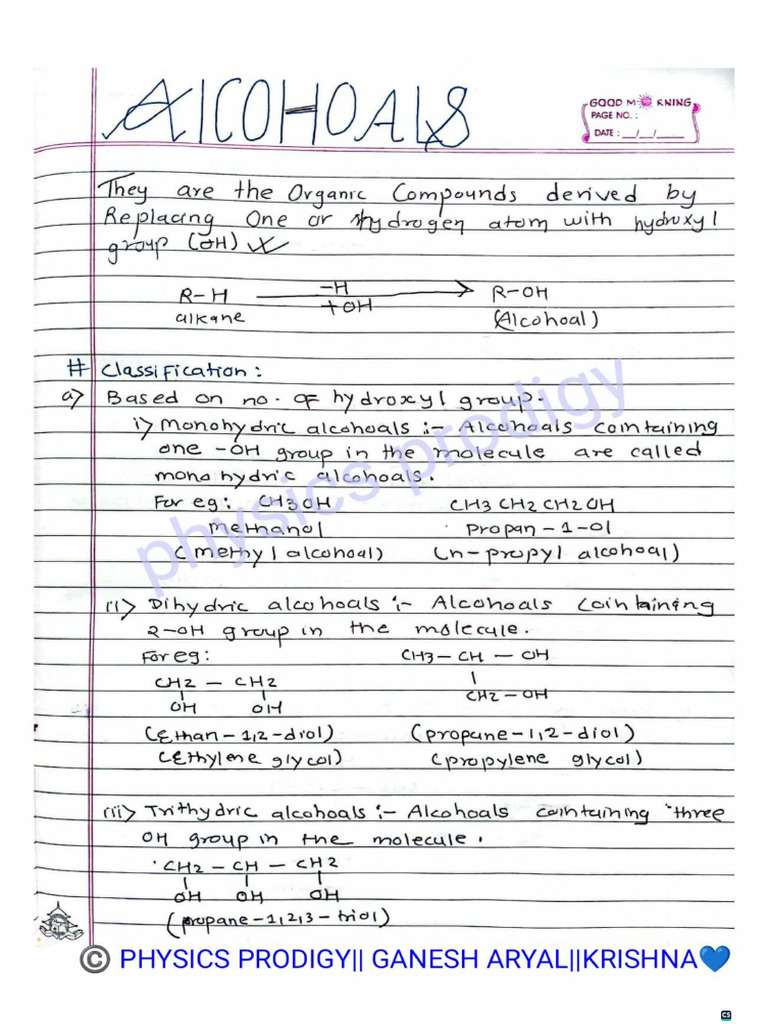 AlCOHOAlS
GOOD MORNING
PAGE NO. :
DATE : __/__/____
They are the Organic Compounds derived by
Replacing One or hydrogen atom with hydroxyl
group (OH)
R-H —H +OH R-OH
alkane (Alcohoal)
# Classification :
a) Based on no. of hydroxyl group.
i) Monohydric alcohoals :- Alcohoals comtaining
one -OH group in the molecule are called
mono hydric alcohoals.
For eg: CH3OH CH3 CH2 CH2 OH
Methanol Propan-1-ol
(methyl alcohoal) (n-propyl alcohoal)
ii) Dihydric alcohoals :- Alcohoals Cointaining
2-OH group in the molecule.
For eg: CH3 - CH - OH
CH2 - CH2 |
| | CH2 - OH
OH OH
(Ethan-1,2-diol) (propane-1,2-diol)
(Ethylene glycol) (propylene glycol)
iii) Trithydric alcohoals :- Alcohoals cointaining three
OH group in the molecule.
CH2 - CH - CH2
| | |
OH OH OH
(propane-1,2,3-triol)
physics prodigy
© PHYSICS PRODIGY|| GANESH ARYAL||KRISHNA💙
CS